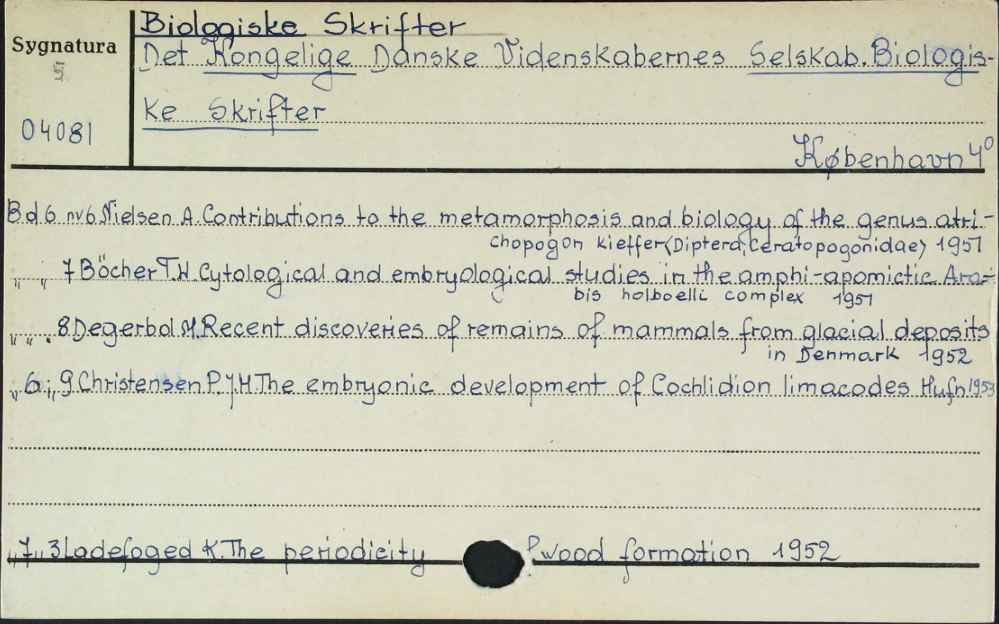 Biologiske Skrifter
Sygnatura
Det Kongelige Danske Videnskabernes Selskab. Biologis-
ke Skrifter
04081
København 4º
Bd 6 nr 6 Nielsen A. Contributions to the metamorphosis and biology of the genus atri-
chopogon kieffer (Diptera, Ceratopogonidae) 1951
" " 7 Böcher T.W. Cytological and embryological studies in the amphi-apomictic Ara-
bis holboelli complex 1951
" " . 8 Degerbol M. Recent discoveries of remains of mammals from glacial deposits
in Denmark 1952
" 6 " 9 Christensen P.J.H. The embryonic development of Cochlidion limacodes Hufn 1953
" 7 " 3 Ladefoged K. The periodicity wood formation 1952